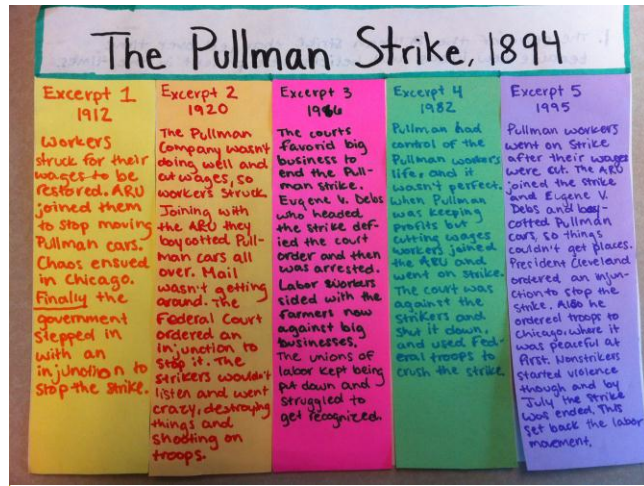 The Pullman Strike, 1894
Excerpt 1
1912
Workers
struck for their
wages to be
restored. ARU
joined them
to stop moving
Pullman cars.
Chaos ensued
in Chicago.
Finally the
government
stepped in
with an
injunction to
stop the strike.
Excerpt 2
1920
The Pullman
Company wasn't
doing well and
cut wages, so
workers struck.
Joining with
the ARU they
boycotted Pull-
man cars all
over. Mail
wasn't getting
around. The
Federal Court
ordered an
injunction to
stop it. The
strikers wouldn't
listen and went
crazy, destroying
things and
shooting on
troops.
Excerpt 3
The courts
favorid big
business to
end the Pull-
man strike.
Eugene V. Debs
who headed
the strike def-
ied the court
order and then
was arrested.
Labor workers
sided with the
farmers now
against big
businesses.
The unions of
labor kept being
put down and
struggled to
get recognized.
Excerpt 4
1982
Pullman had
control of the
Pullman workers
life, and it
wasn't perfect.
When Pullman
was keeping
profits but
cutting wages
workers joined
the ARU and
went on strike.
The court was
against the
strikers and
shut it down,
and used Fed-
eral troops to
crush the strike.
Excerpt 5
1995
Pullman workers
went on strike
after their wages
were cut. The ARU
joined the strike
and Eugene V.
Debs and boy-
cotted Pullman
cars, so things
couldn't get places.
President Cleveland
ordered an injun-
ction to stop the
strike. Also he
ordered troops to
Chicago, where it
was peaceful at
first. Nonstrikers
started violence
though and by
July the strike
was ended. This
set back the labor
movement.